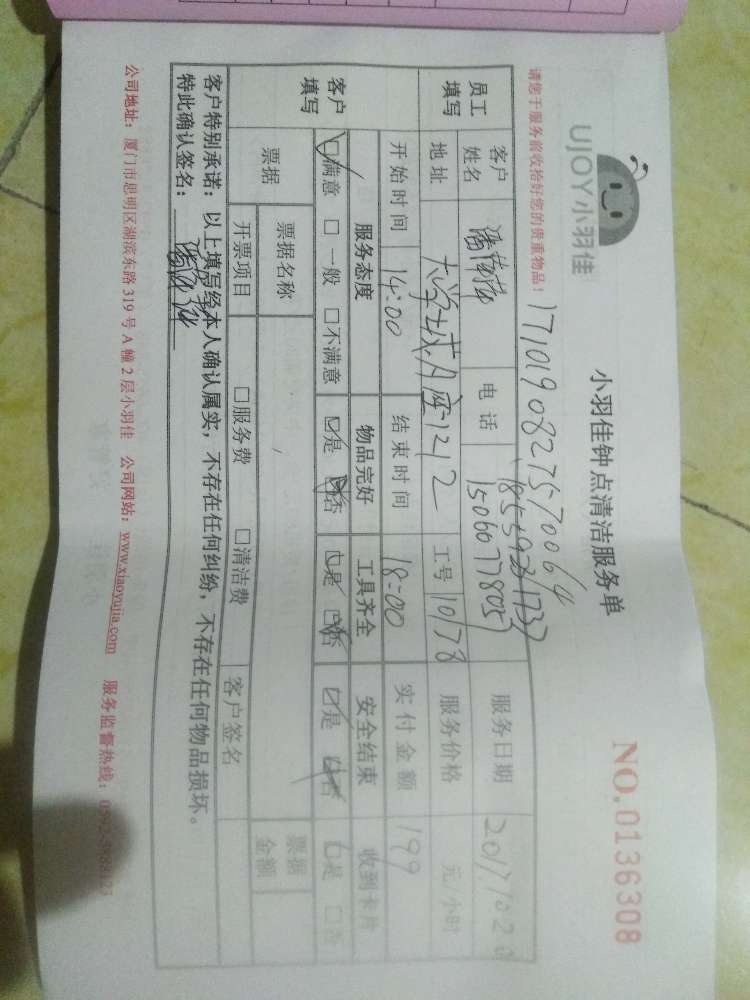 UJOY小羽佳
小羽佳钟点清洁服务单
NO.0136308
请您于服务前收拾好您的贵重物品！
1710190827570064
18559231737
员工填写
客户姓名
电话 15060778057
服务日期 20171020
地址 大学城A座1212
工号 10178
服务价格 元/小时
开始时间 14:00
结束时间 18:00
实付金额 199
客户填写
服务态度 物品完好 工具齐全 安全结束 收到卡片
☑满意 □一般 □不满意 ☑是 ☑否 ☑是 ☑否 ☑是 ☑否 □是 □否
票据
票据名称
票据金额
开票项目 □服务费 □清洁费
客户签名
客户特别承诺：以上填写经本人确认属实，不存在任何纠纷，不存在任何物品损坏。
特此确认签名：
公司地址：厦门市思明区湖滨东路319号A幢2层小羽佳 公司网站：www.xiaoyujia.com 服务监督热线：